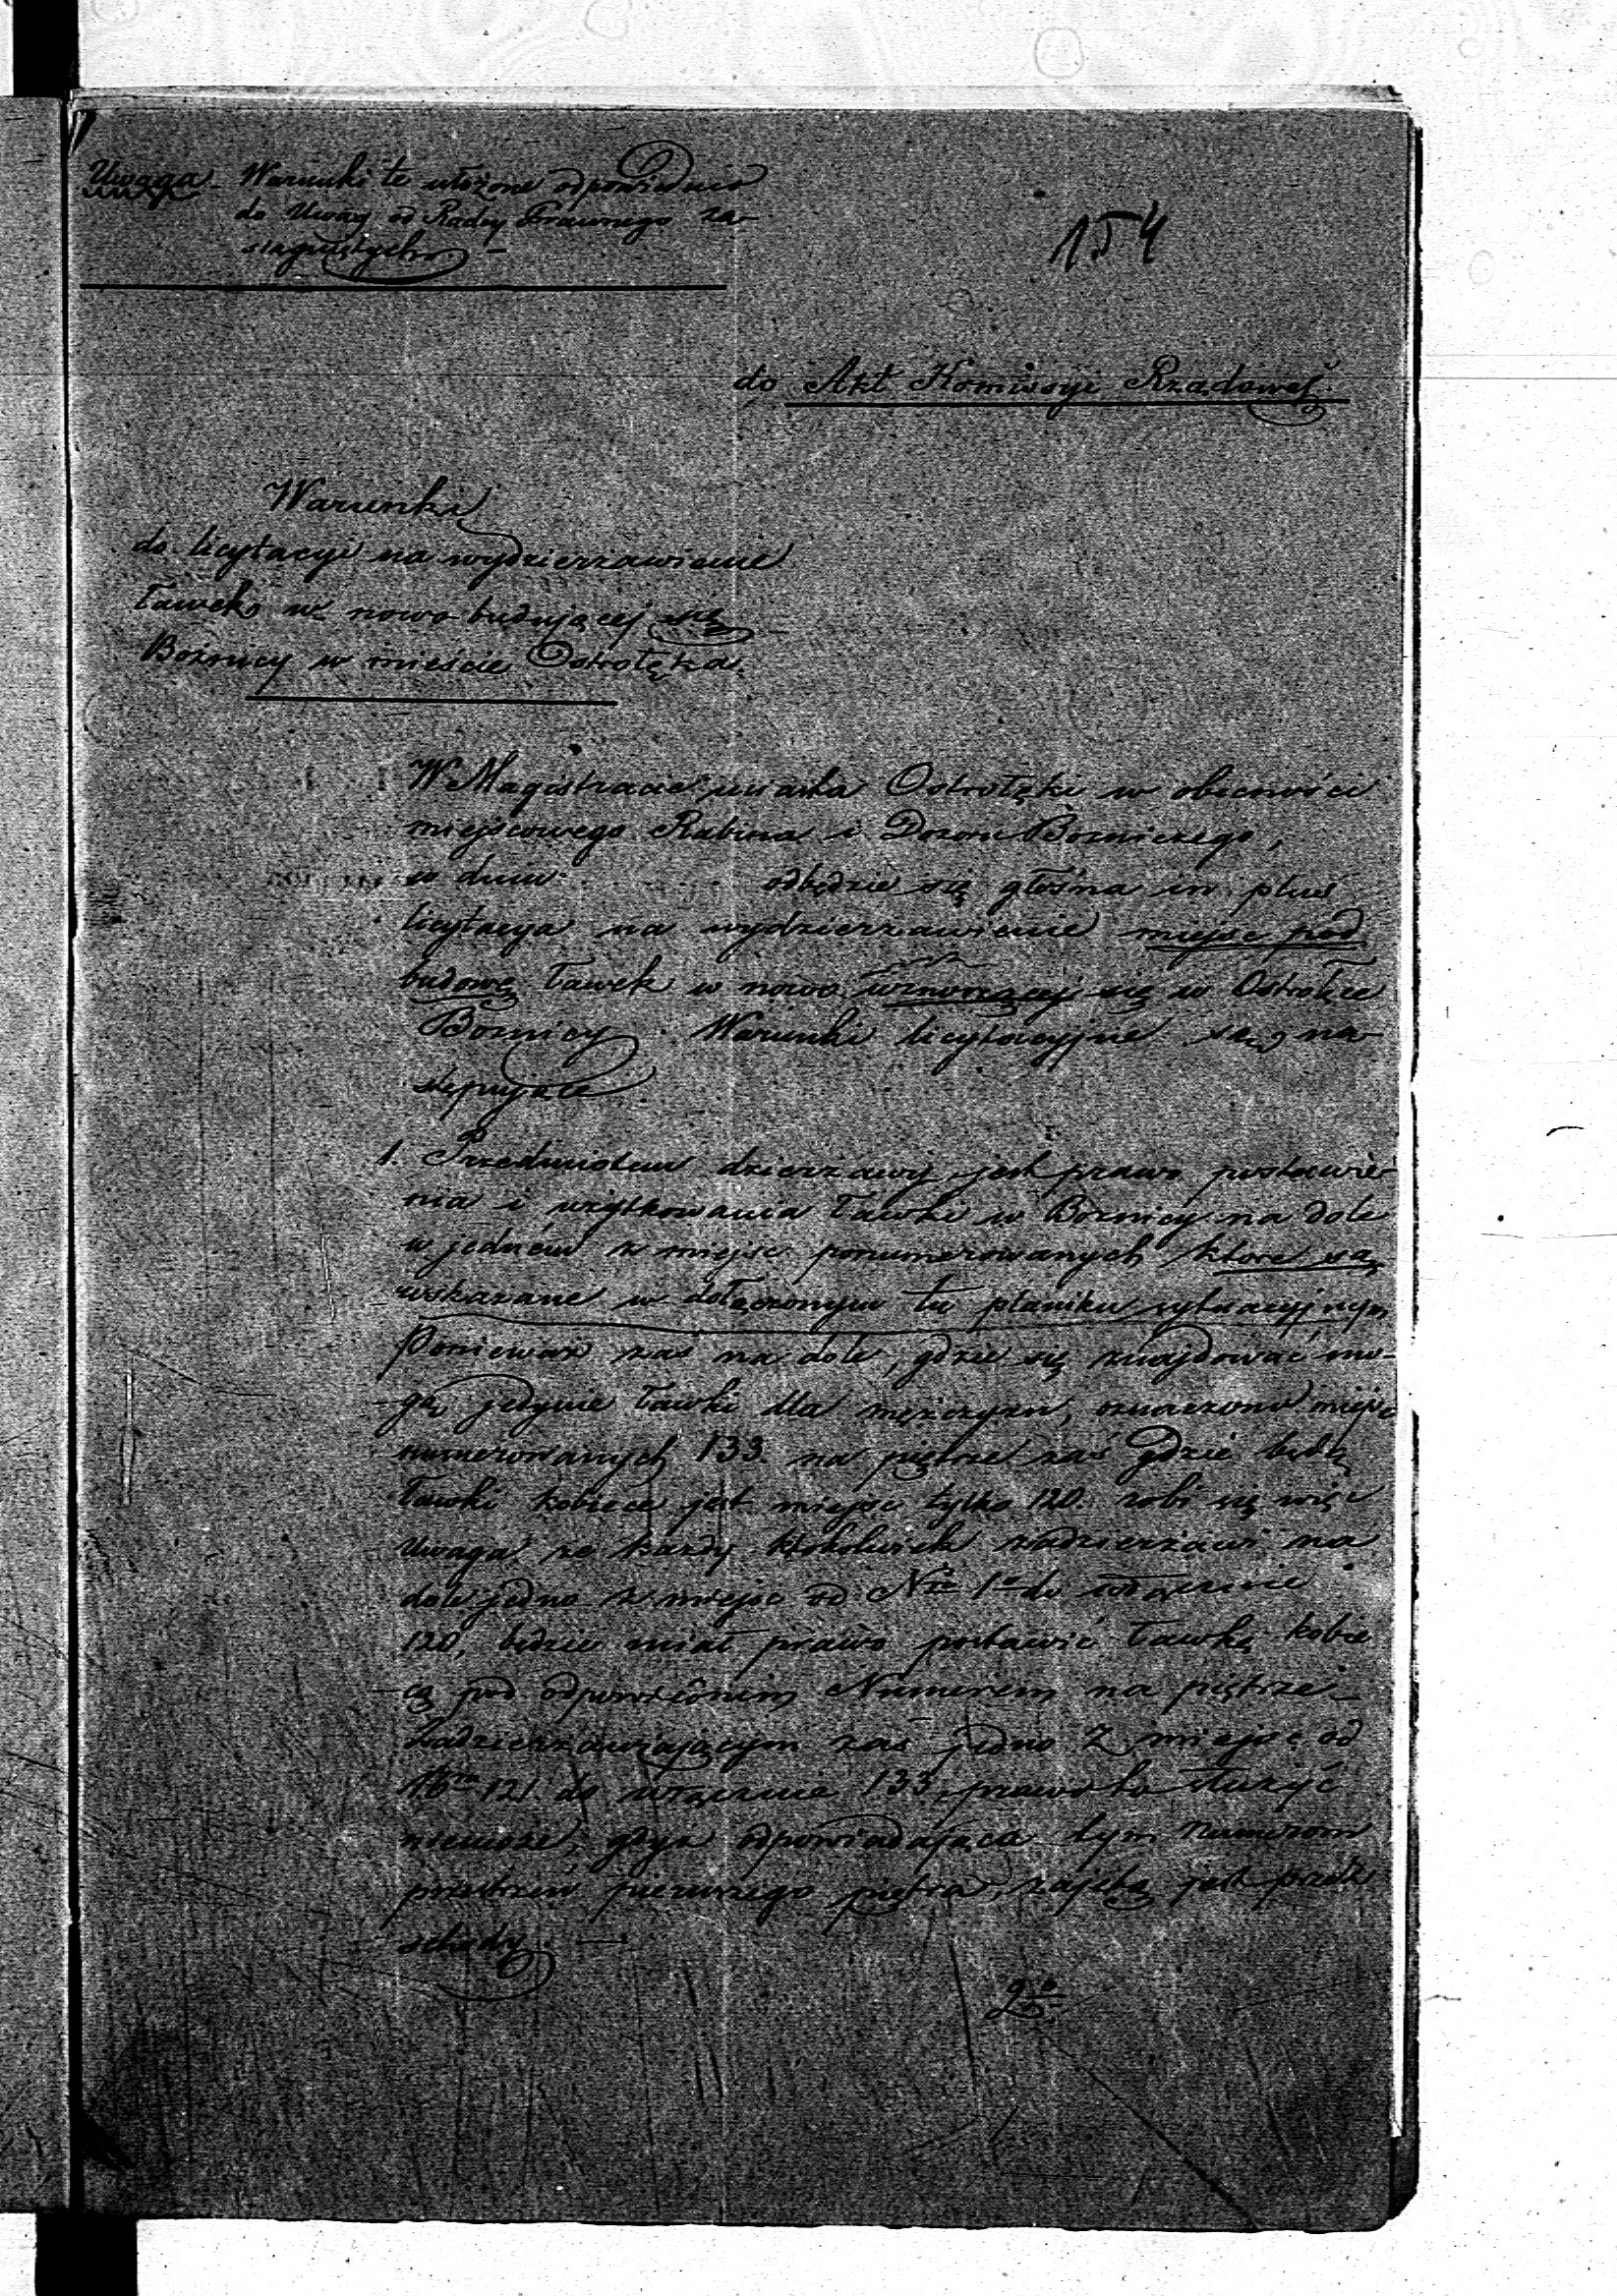 Uwaga. Warunki te ułożone odpowiednio
do Uwag od Radcy Prawnego za-
siągniętych –
154
do Akt Komissyi Rządowej
Warunki
do licytacyi na wydzierzawienie
ławek w nowo budującej się
Bożnicy w mieście Ostrołęka.
W Magistracie miasta Ostrołęki w obecności
miejscowego Rabina i Dozoru Bożniczego,
w dniu odbędzie się głośna in plus
licytacya na wydzierzawienie miejsc pod
budowę ławek w nowo wznoszącej się w Ostrołęce
Bożnicy. Warunki licytacyjne są na-
stępujące
1. Przedmiotem dzierżawy jest prawo postawie-
nia i użytkowania ławki w Bożnicy na dole
w jedném z miejsc ponumerowanych które są
wskazane w dołączonym tu planiku sytuacyjnym
Ponieważ zaś na dole, gdzie się znajdować mo-
gą jedynie ławki dla mężczyzn, oznaczono miejsc
numerowanych 133. na piętrze zaś gdzie będą
ławki kobiece jest miejsc tylko 120. robi się więc
Uwaga że każdy ktokolwiek zadzierżawi na
dole jedno z miejsc od Nru 1o do włącznie
120, będzie miał prawo postawić ławkę kobie
cą pod odpowiednim Numerem na piętrze –
Zadzierżawiającym zaś jedno z miejsc od
Nru 121. do włącznie 133, prawo to służyć
niemoże, gdyż odpowiadająca tym Numerom
przestrzeń pierwszego piętra, zajętą jest przez
schody. —
2o